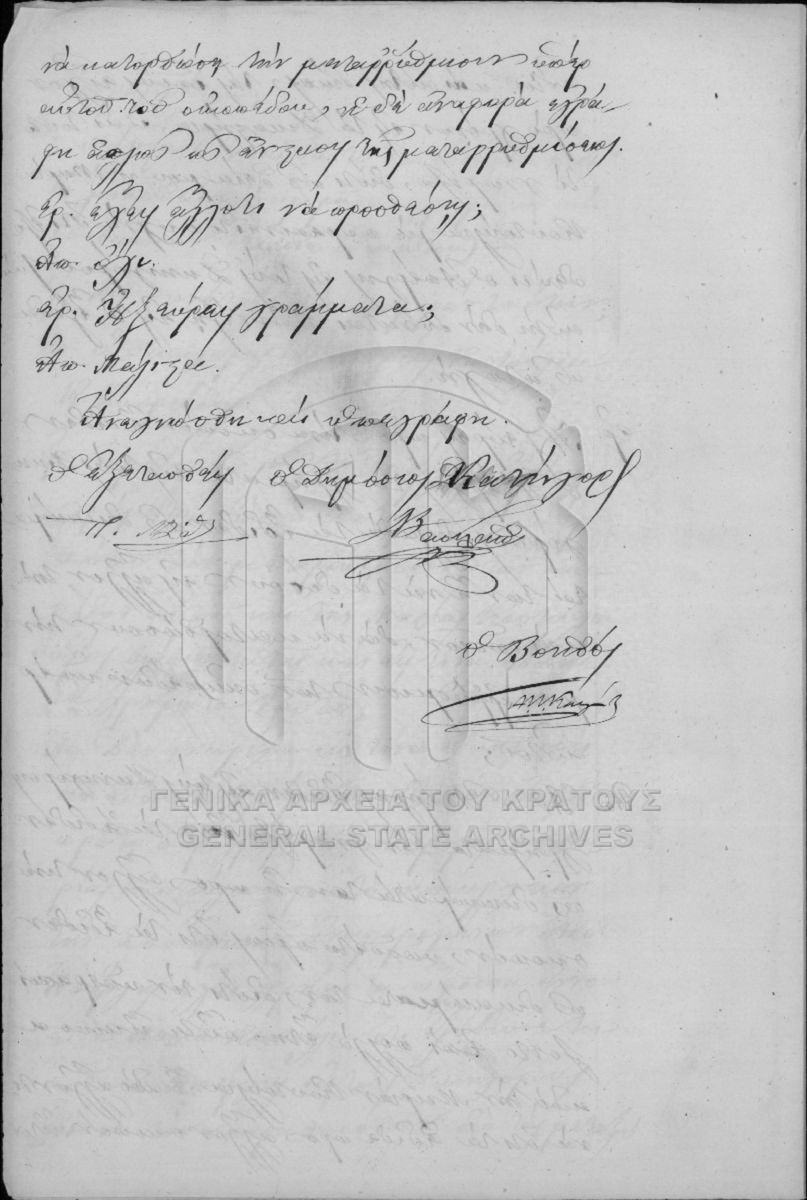 νὰ κατορθώσῃ τὴν μεταρρύθμισιν ὑπὲρ
αὐτοῦ τοῦ οἰκοπέδου, ἡ δὲ ἀναφορὰ ἐγρά-
φη πρὸς τῆς μεταρρυθμίσεως.
Ἐρ. Ἔχεις ἄλλο τι νὰ προσθέσῃς;
Ἀπ. ὄχι.
Ἐρ. Ἠξεύρεις γράμματα;
Ἀπ. Μάλιστα.
Ἀνεγνώσθη καὶ ὑπεγράφη.
Ὁ ἐξετασθεὶς Ὁ Δημόσιος Κατήγορος
Π.
Ὁ Βοηθός
ΓΕΝΙΚΑ ΑΡΧΕΙΑ ΤΟΥ ΚΡΑΤΟΥΣ
GENERAL STATE ARCHIVES